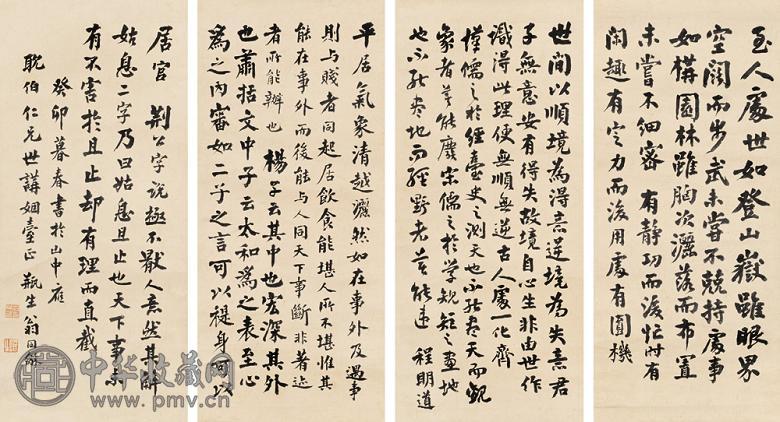 至人處世如登山嶽雖眼界
空闊而步武未嘗不兢持處事
如構園林雖胸次灑落而布置
未嘗不細密 有靜功而後忙時有
閑趣有定力而後用處有圓機
世間以順境為得意逆境為失意君
子無意安有得失故境自心生非由世作
識得此理便無順無逆古人處一化齊
漢儒之於經臺史之測天也不能盡天而觀
象者莫能廢宋儒之於學規矩之畫地
也不能盡地而經野者莫能違 程明道
平居氣象清越灑然如在事外及遇事
則与賤者同起居飲食能堪人所不堪惟其
能在事外而後能与人同天下事斷非著迹
者所能辦也 楊子云其中也宏深其外
也肅括文中子云太和為之表至心
為之內審如二子之言可以褆身可以
居官 荆公字說極不厭人意然其解
姑息二字乃曰姑息且止也天下事未
有不害於且止却有理而直截
癸卯暮春書於山中應
耽伯仁兄世講姻臺正 瓶生翁同龢
中华收藏网
www.pmv.cn